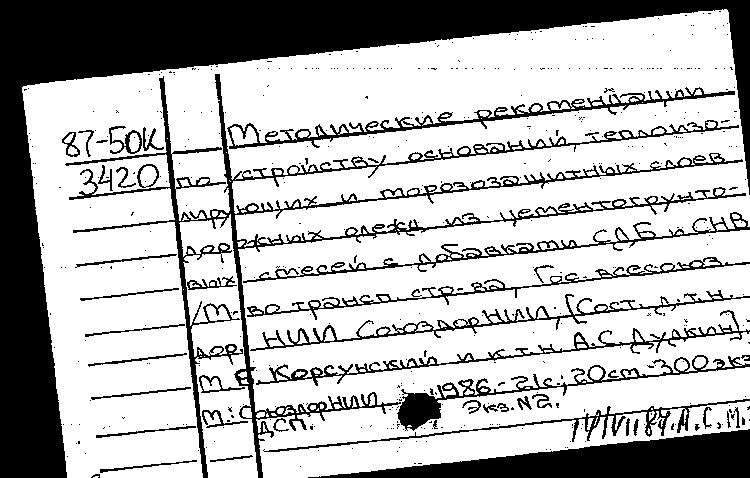 87-50К Методические рекомендации
3420 по устройству оснований, теплоизо-
лирующих и морозозащитных слоев
дорожных одежд из цементогрунто-
вых смесей с добавками СДБ и СНВ
/М-во трансп. стр-ва, Гос. всесоюз.
дор. НИИ СоюздорНИИ; [Сост. д.т.н.
М.Б. Корсунский и к.т.н. А.С. Дудкин].
М.: СоюздорНИИ, 1986.-21с.; 20см.-300экз
ДСП. Экз.№2.
А.С.М.